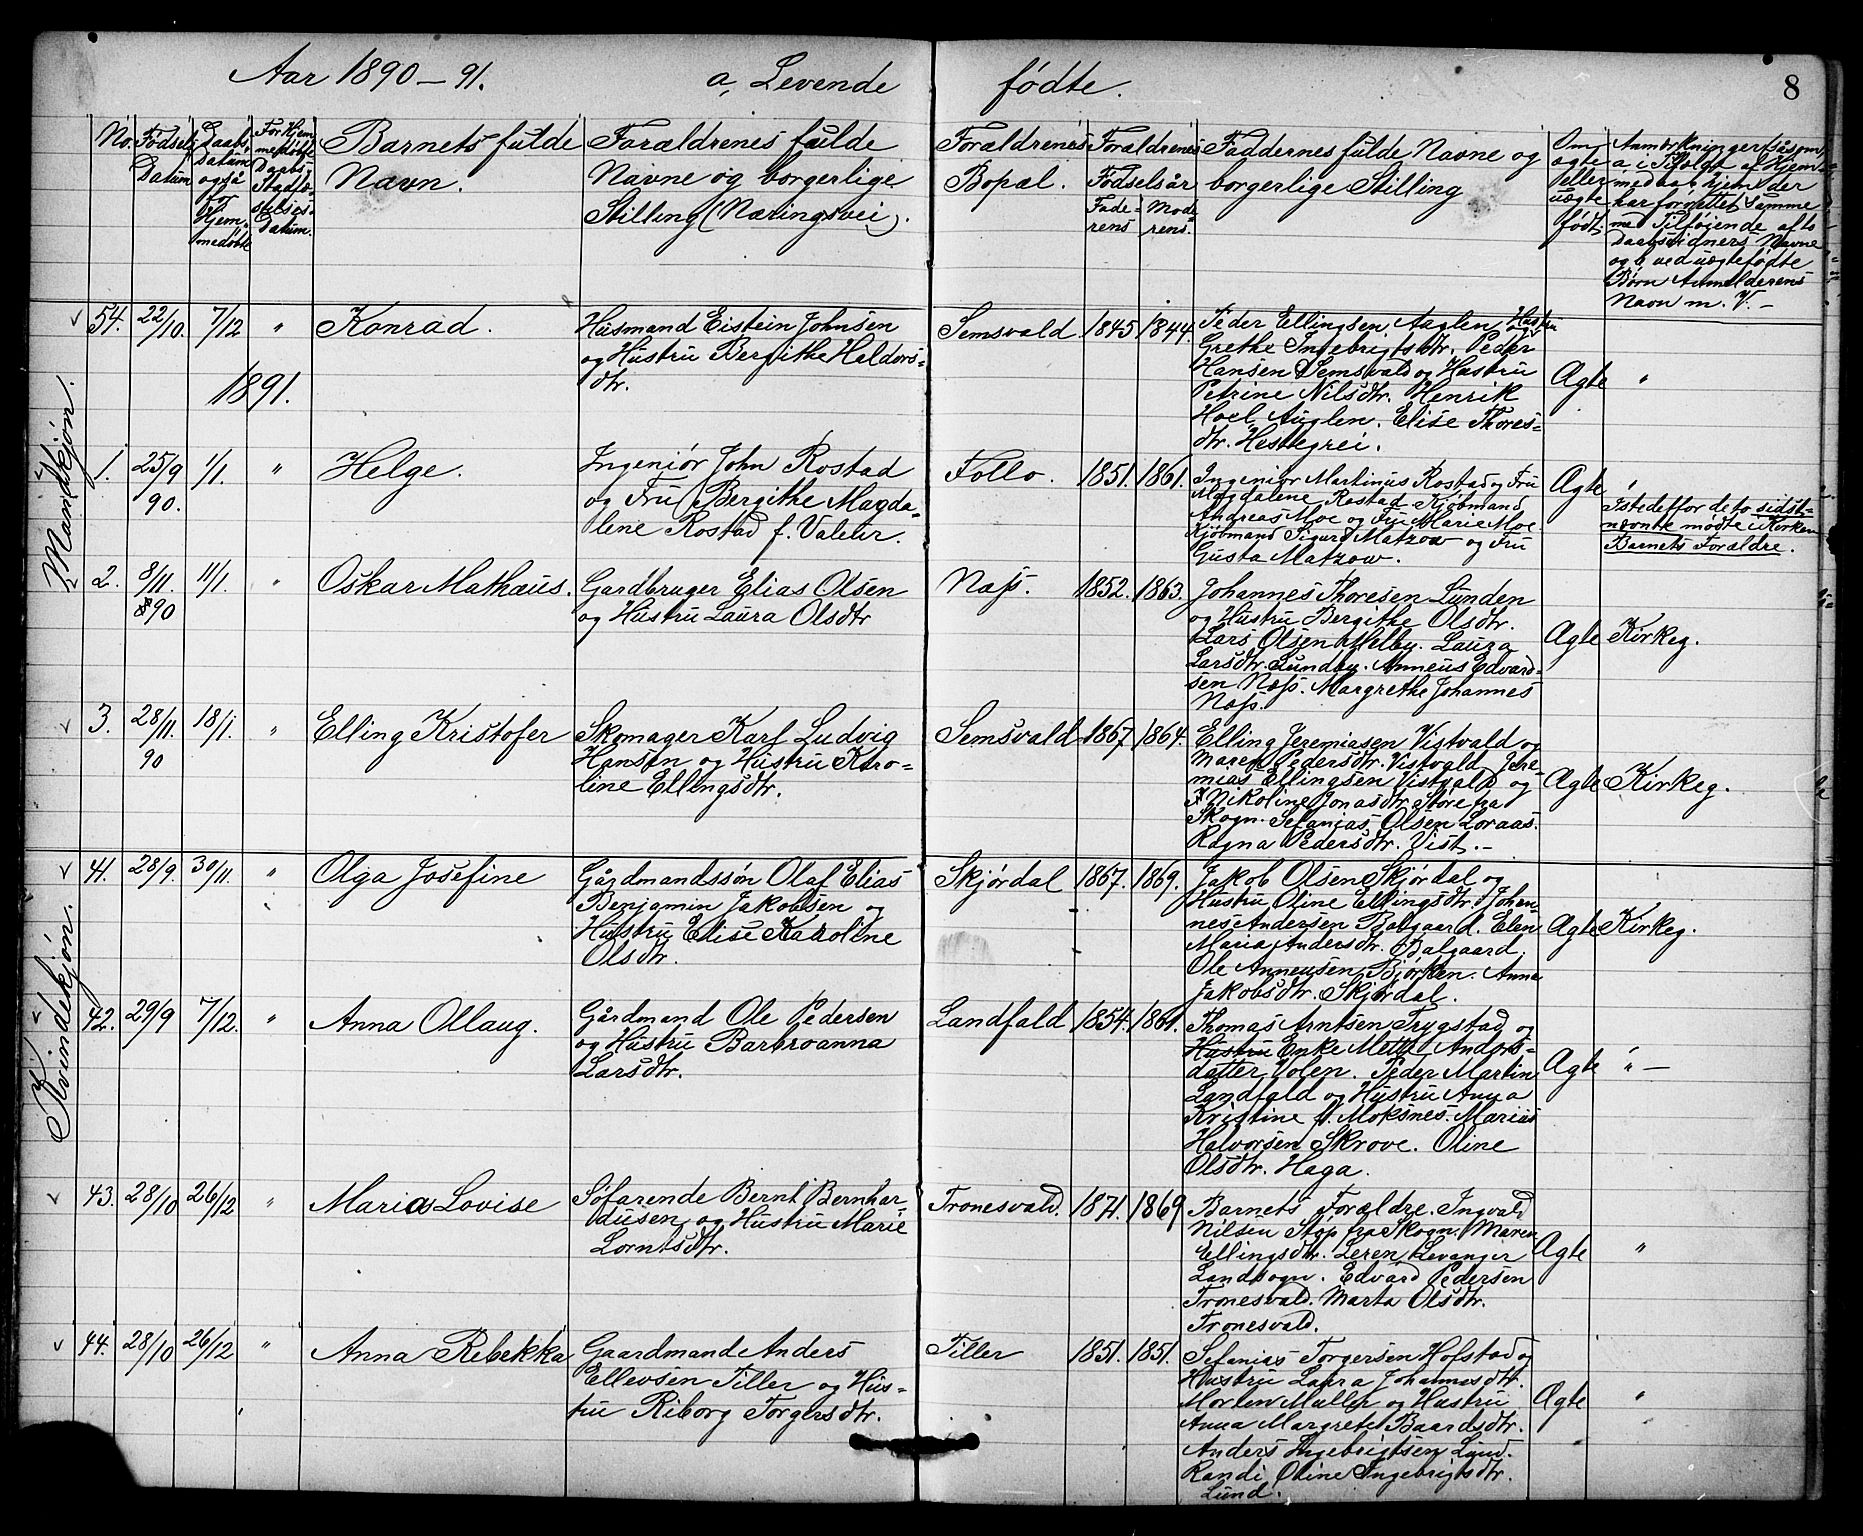 Aar 1890-91. a, Levende fødte. 8
No. Fødsels Datum
Daabs, Datum også f. Hjem, medøbte
For Hjem, medøbte Daabs, Stadfæ, stelses, Datum.
Barnets fulde
Navn.
Forældrenes fulde
Navne og borgerlige
Stilling (Næringsvei).
Forældrenes
Bopæl.
Forældrenes
Fødselsår
Fade-
rens
Mode-
rens.
Faddernes fulde Navne og
borgerlige Stilling
Om
ægte
eller
uægte
født.
Anmærkninger såsom
a i Tilfælde af Hjem-
medaab hjem der
har forrettet samme
med Tilføiende af to
Daabsvidners Navne
og b ved uægtefødte
Børn Anmelderens
Navn m. V. -
Mandkjøn.
54. 22/10. 7/12 " Konrad.
Husmand Eistein Johnsen
og Hustru Bergithe Haldors-
dtr.
Semsvald 1845 1844.
Peder Ellingsen Aaglen, Hustru
Grethe Ingebrigtsdtr. Peder
Hansen Semsvald og Hustru
Petrine Nilsdtr. Henrik
Hoel, Auglen. Elise Thores-
dtr. Hestegrei.
Ægte "
1891.
1. 25/9 90. 1/1. " Helge.
Ingeniør John Rostad
og Fru Bergithe Magda-
lene Rostad f. Valeur.
Follo. 1851. 1861.
Ingeniør Martinus Rostad og Fru
Magdalene Rostad. Kjøbmand
Andreas Moe og Fru Marie Moe
Kjøbmand Sigurd Matzow og Fru
Gusta Matzow.
Ægte "
Istedetfor de to sidst-
nævnte mødte i Kirken
Barnets Forældre.
2. 8/11. 90 11/1. " Oskar Mathæus.
Gardbruger Elias Olsen
og Hustru Laura Olsdtr
Næss. 1852. 1863.
Johannes Thoresen Lunden
og Hustru Bergithe Olsdtr.
Lars Olsen Melby. Laura
Larsdtr. Lundby. Anneus Edvard-
sen Næss. Margrethe Johannes
Næss.
Ægte Kirkeg.
3. 28/11. 90 18/1. " Elling Kristofer
Skomager Karl Ludvig
Hansen og Hustru Karo-
line Ellingsdtr.
Semsvald 1867 1864.
Elling Jeremiasen Vistvald og
Maren Pedersdtr. Vistvald. Jere-
mias Ellingsen Vistvald og
Nikoline Jonasdtr. Støre fra
Skogn. Sefanias Olsen Loraas.
Ragna Pedersdtr. Vist. -
Ægte Kirkeg.
Kvindekjøn.
41. 28/9. 30/11. " Olga Josefine
Gårdmandssøn Olaf Elias
Benjamin Jakobsen og
Hustru Elise Karoline
Olsdtr.
Skjørdal 1867. 1869.
Jakob Olsen Skjørdal og
Hustru Oline Ellingsdtr. Johan-
nes Andersen Balgaard. Elen
Maria Andersdtr. Balgaard.
Ole Anneusen Bjørken. Anna
Jakobsdtr. Skjørdal.
Ægte Kirkeg.
42. 29/9 7/12. " Anna Ollaug.
Gårdmand Ole Pedersen
og Hustru Barbroanna
Larsdtr.
Landfald 1854. 1861.
Thomas Arntsen Trygstad og
Hustru Enke Mette Anders-
datter Volen. Peder Martin
Landfald og Hustru Anna
Kristine f. Moksnes. Marius
Halvorsen Skrove. Oline
Olsdtr. Haga.
Ægte " -
43. 28/10 26/12 " Maria Lovise
Søfarende Bernt Bernhar-
dusen og Hustru Marie
Lorntsdtr.
Tronesvald. 1871. 1869
Barnets Forældre. Ingvald
Nilsen Stop fra Skogn. Maren
Ellingsdtr. Leren, Levanger
Landsogn. Edvard Pedersen
Tronesvald. Marta Olsdtr.
Tronesvald.
Ægte "
44. 28/10 26/12 " Anna Rebekka
Gaardmand Anders
Ellevsen Tiller og Hus-
tru Riborg Torgersdtr.
Tiller 1851. 1851.
Sefanias Torgersen Hofstad og
Hustru Laura Johannesdtr.
Morten Muller og Hustru
Anna Margrete Baardsdtr.
Anders Ingebrigtsen Lund.
Randi Oline Ingebrigtsdtr.
Lund.
Ægte "